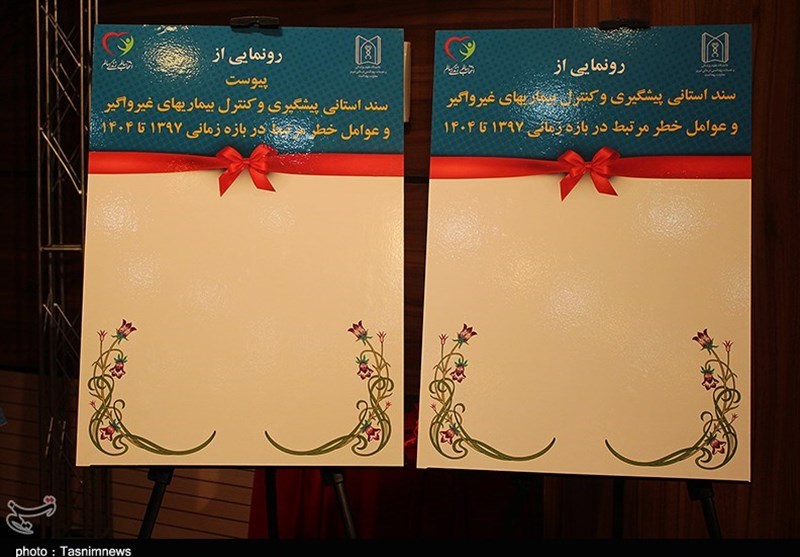 رونمایی از
پیوست
سند استانی پیشگیری و کنترل بیماریهای غیرواگیر
و عوامل خطر مرتبط در بازه زمانی ۱۳۹۷ تا ۱۴۰۴
رونمایی از
سند استانی پیشگیری و کنترل بیماریهای غیرواگیر
و عوامل خطر مرتبط در بازه زمانی ۱۳۹۷ تا ۱۴۰۴
photo : Tasnimnews